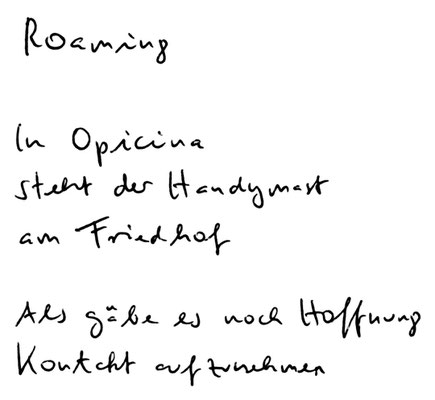 Roaming
In Opicina
steht der Handymast
am Friedhof
Als gäbe es noch Hoffnung
Kontakt aufzunehmen